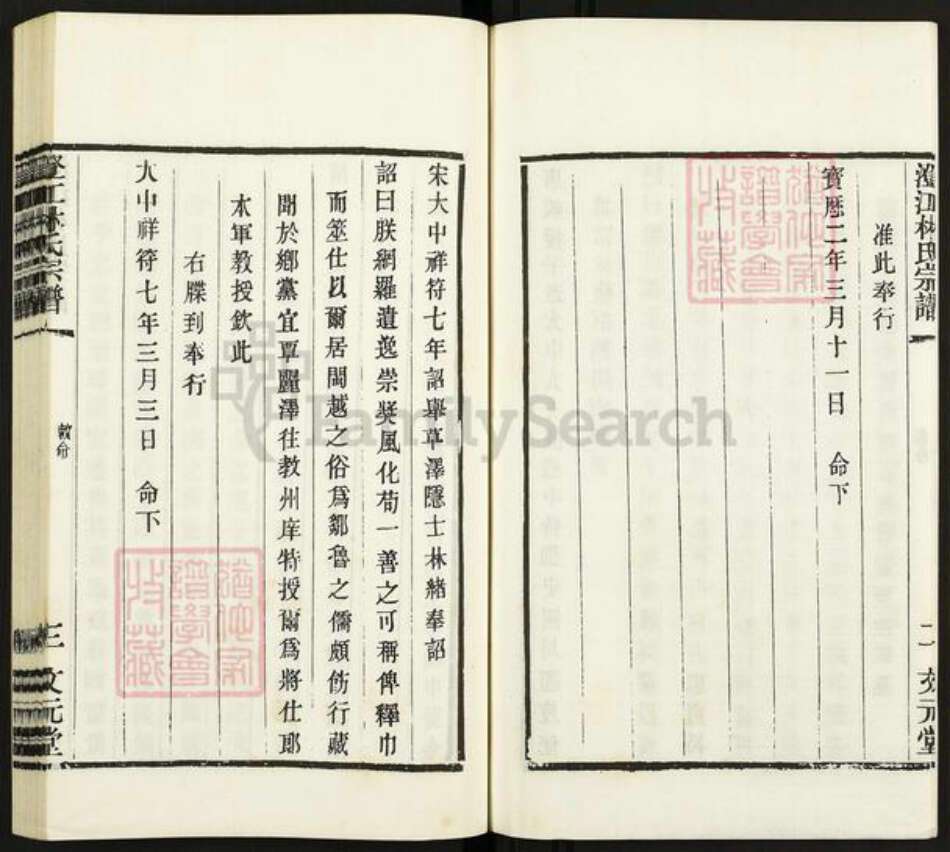 澄江林氏宗譜
二 文元堂
准此奉行
寶曆二年三月十一日 命下
宋大中祥符七年詔舉草澤隱士林緒奉詔
詔曰朕網羅遺逸崇獎風化苟一善之可稱俾釋巾
而筮仕以爾居閩越之俗爲鄒魯之儒頗飭行藏
聞於鄉黨宜覃麗澤往教州庠特授爾爲將仕郎
本軍教授欽此
右牒到奉行
大中祥符七年三月三日 命下
澄江林氏宗譜
敕命
三 文元堂
譜學會
收藏
譜學會
收藏
FamilySearch